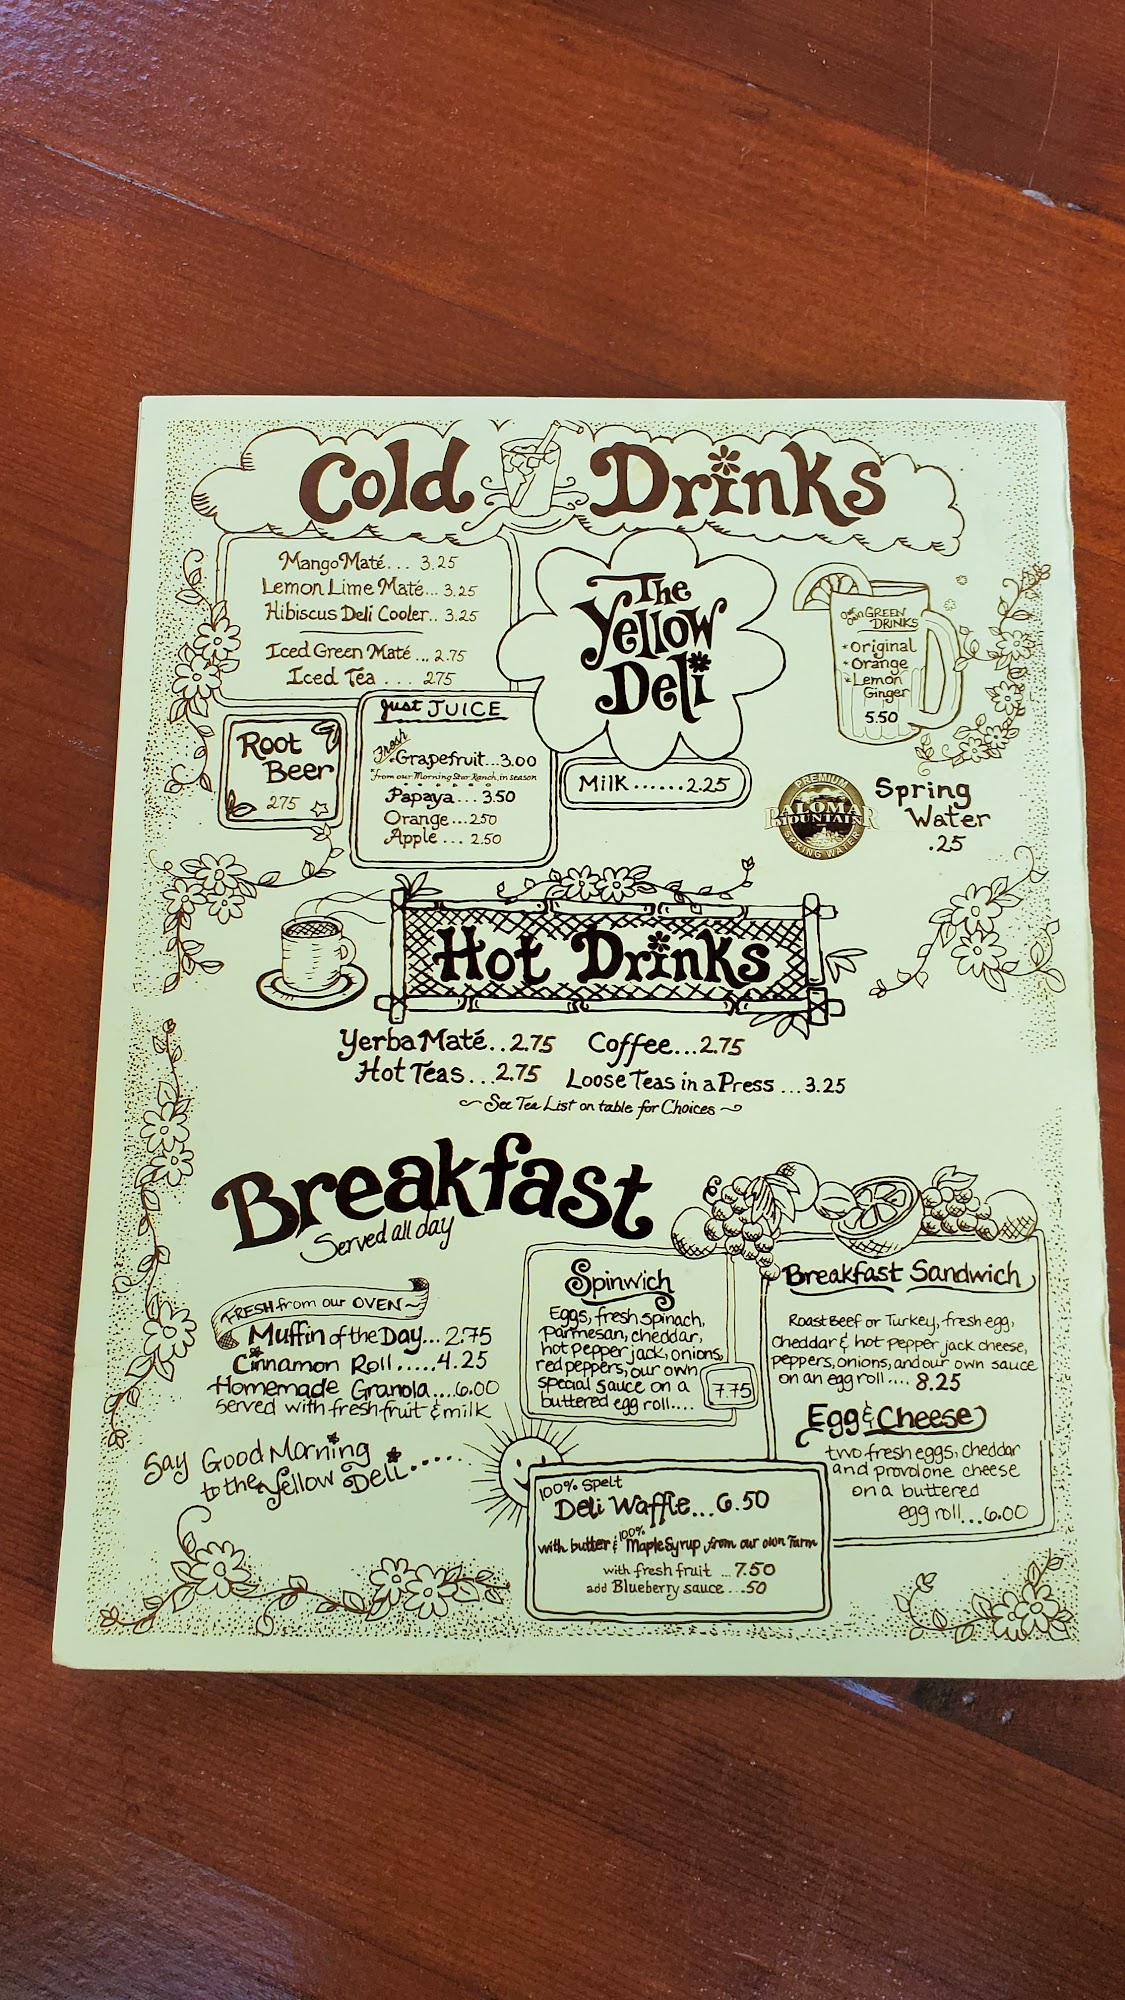 Cold Drinks
Mango Maté... 3.25
Lemon Lime Maté... 3.25
Hibiscus Deli Cooler.. 3.25
Iced Green Maté ... 2.75
Iced Tea . . . 275
The
Yellow
Deli
GREEN
DRINKS
*Original
*Orange
*Lemon
Ginger
5.50
Root
Beer
275
Just JUICE
Fresh
Grapefruit...3.00
*from our Morning Star Ranch, in season
Papaya... 3.50
Orange ...250
Apple ... 2.50
Milk......2.25
PREMIUM
PALOMAR
MOUNTAIN
SPRING WATER
Spring
Water
.25
Hot Drinks
Yerba Maté..2.75 Coffee...2.75
Hot Teas...2.75 Loose Teas in a Press ...3.25
~ See Tea List on table for Choices ~
Breakfast
Served all day
FRESH from our OVEN~
Muffin of the Day... 2.75
Cinnamon Roll.....4.25
Homemade Granola....6.00
served with fresh fruit & milk
Say Good Morning
to the Yellow Deli.....
Spinwich
Eggs, fresh spinach,
parmesan, cheddar,
hot pepper jack, onions,
red peppers, our own
special sauce on a
buttered egg roll....
7.75
Breakfast Sandwich
Roast Beef or Turkey, fresh egg,
cheddar & hot pepper jack cheese,
peppers, onions, and our own sauce
on an egg roll .... 8.25
Egg & Cheese
two fresh eggs, cheddar
and provolone cheese
on a buttered
egg roll...6.00
100% Spelt
Deli Waffle...6.50
with butter & 100% Maple Syrup, from our own Farm
with fresh fruit ...7.50
add Blueberry sauce ...50